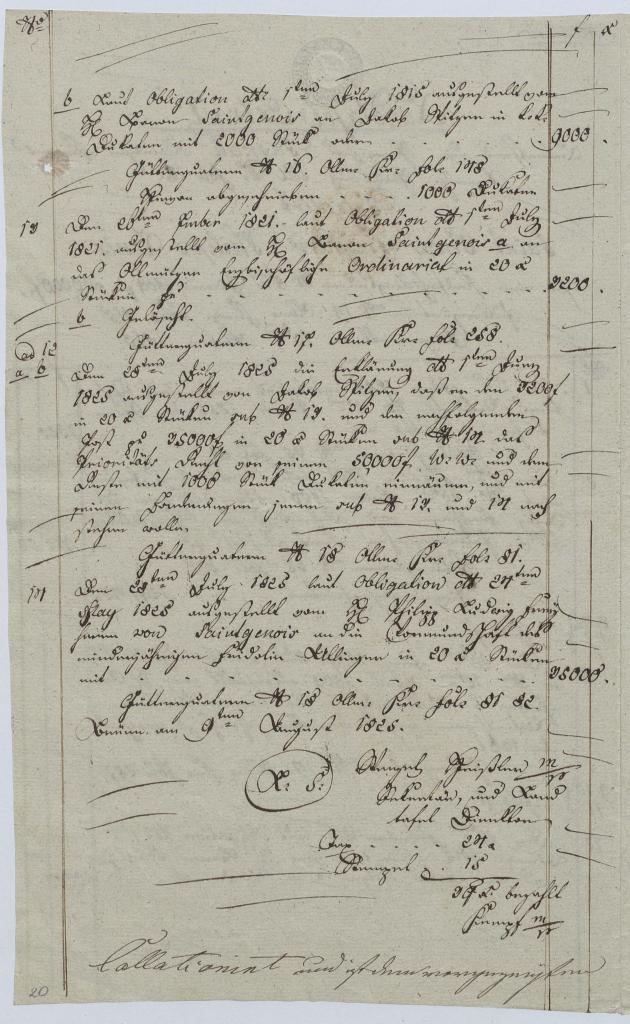 No f x
b Laut Obligation dto 1ten July 1815 ausgestellt vom
H Baron Saintgenois an Jakob Spitzer in k.k.
Dukaten mit 2000 Stück oder . . . . 9000 .
Güttenquatern No 16. Ollm: Krs: fol: 148
Hievon abgeschrieben . . . . 1000 Dukaten
13 Den 28ten 1821. laut Obligation dto 1ten July
1821. ausgestellt vom H Baron Saintgenois a an
das Ollmützer Erzbischöfliche Ordinariat in 20 x
Stücken pr . . . . 3200 .
b Gelöscht.
Güttenquatern No 17. Ollm: Krs: fol: 258.
ad 12
a b Den 28ten July 1825 die Erklärung dto 1ten Juny
1825 ausgestellt von Jakob Spitzer, daß er den 3200f
in 20 x Stücken sub No 13. und der nachfolgenden
Post pr 35000f in 20 x Stücken sub No 14. das
Prioritäts Recht vor seinen 50000f. W: W: und dem
Reste mit 1000 Stück Dukaten einräume, und mit
seinen Forderungen jenen sub No 13. und 14 nach
stehen wolle.
Güttenquatern No 18 Ollm: Krs: fol: 81.
14 Den 28ten July 1825 laut Obligation dto 24ten
May 1825 ausgestellt vom H Philipp Ludwig Frey
herrn von Saintgenois an die Vormundschaft des
minderjährigen Fridolin in 20 x Stücken
mit . . . . 35000 .
Güttenquatern No 18 Ollm: Krs: fol: 81 82.
Brünn am 9ten August 1825.
L: S: Wenzel m/p
Sekretär, und Land
tafel Direktor
Tax . . . . 24 x
Stempel . 15
39 x: bezahlt
Kumpf m/p
Collationirt und ist dem vorgezeigten
20